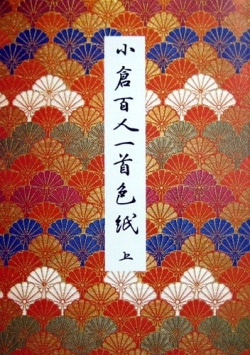 小倉百人一首色紙 上